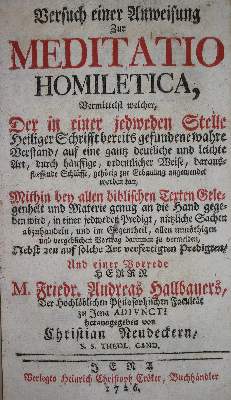 Versuch einer Anweisung
Zur
MEDITATIO
HOMILETICA,
Vermittelst welcher,
Der in einer jedweden Stelle
Heiliger Schrifft bereits gefundene wahre
Verstand, auf eine gantz deutliche und leichte
Art, durch häuffige, ordentlicher Weise, daraus-
fliessende Schlüsse, gehörig zur Erbauung angewendet
werden kan,
Mithin bey allen biblischen Texten Gele-
genheit und Materie genug an die Hand gege-
ben wird, in einer jedweden Predigt, nützliche Sachen
abzuhandeln, und im Gegentheil, allen unnöthigen
und vergeblichen Vortrag darinnen zu vermeiden,
Nebst auf solche Art verfertigten Predigten,
Und einer Vorrede
HERRN
M. Friedr. Andreas Hallbauers,
Der Hochlöblichen Philosophischen Facultät
zu Jena ADIVNCTI
herausgegeben von
Christian Neudeckern,
S. S. THEOL. CAND.
JENA
Verlegts Heinrich Christoph Cröker, Buchhändler
1726.